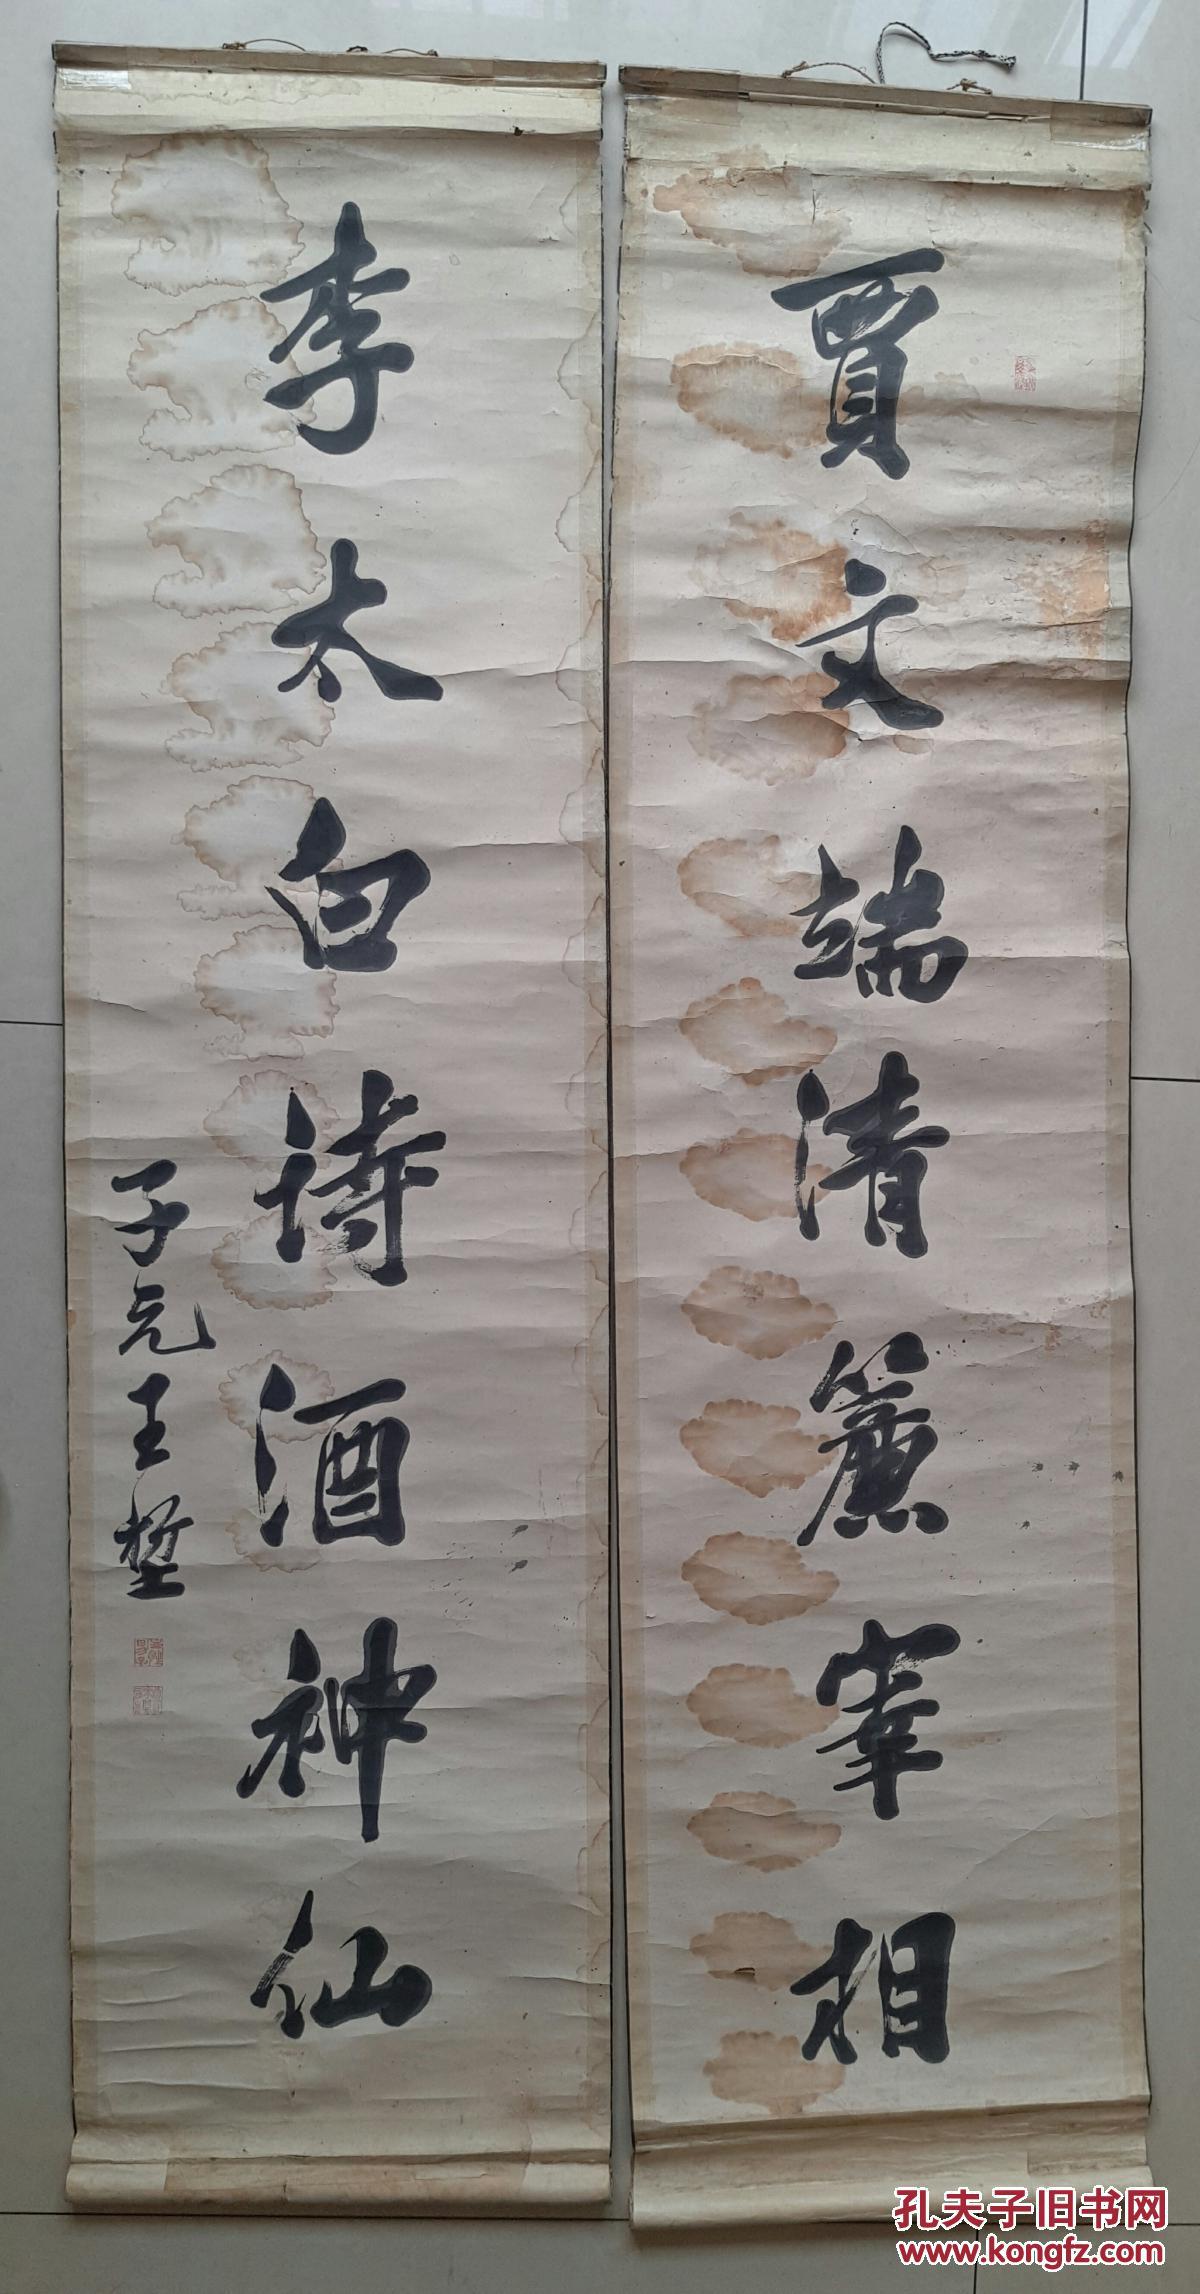 賈文端清簾宰相
李太白詩酒神仙
子元王埑
孔夫子旧书网
www.kongfz.com